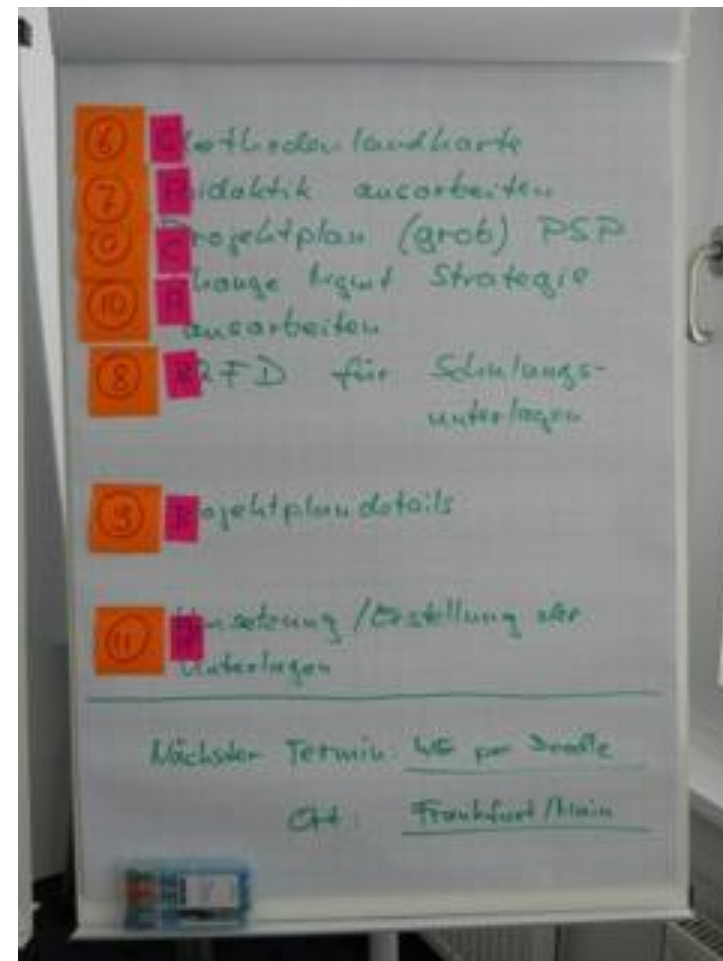 6 Methodenlandkarte
7 Didaktik ausarbeiten
Projektplan (grob) PSP
10 Change Mgmt Strategie
ausarbeiten
8 für Schulungs-
unterlagen
Projektplandetails
11 Umsetzung / Erstellung der
Unterlagen
Nächster Termin: per Doodle
Ort: Frankfurt/Main